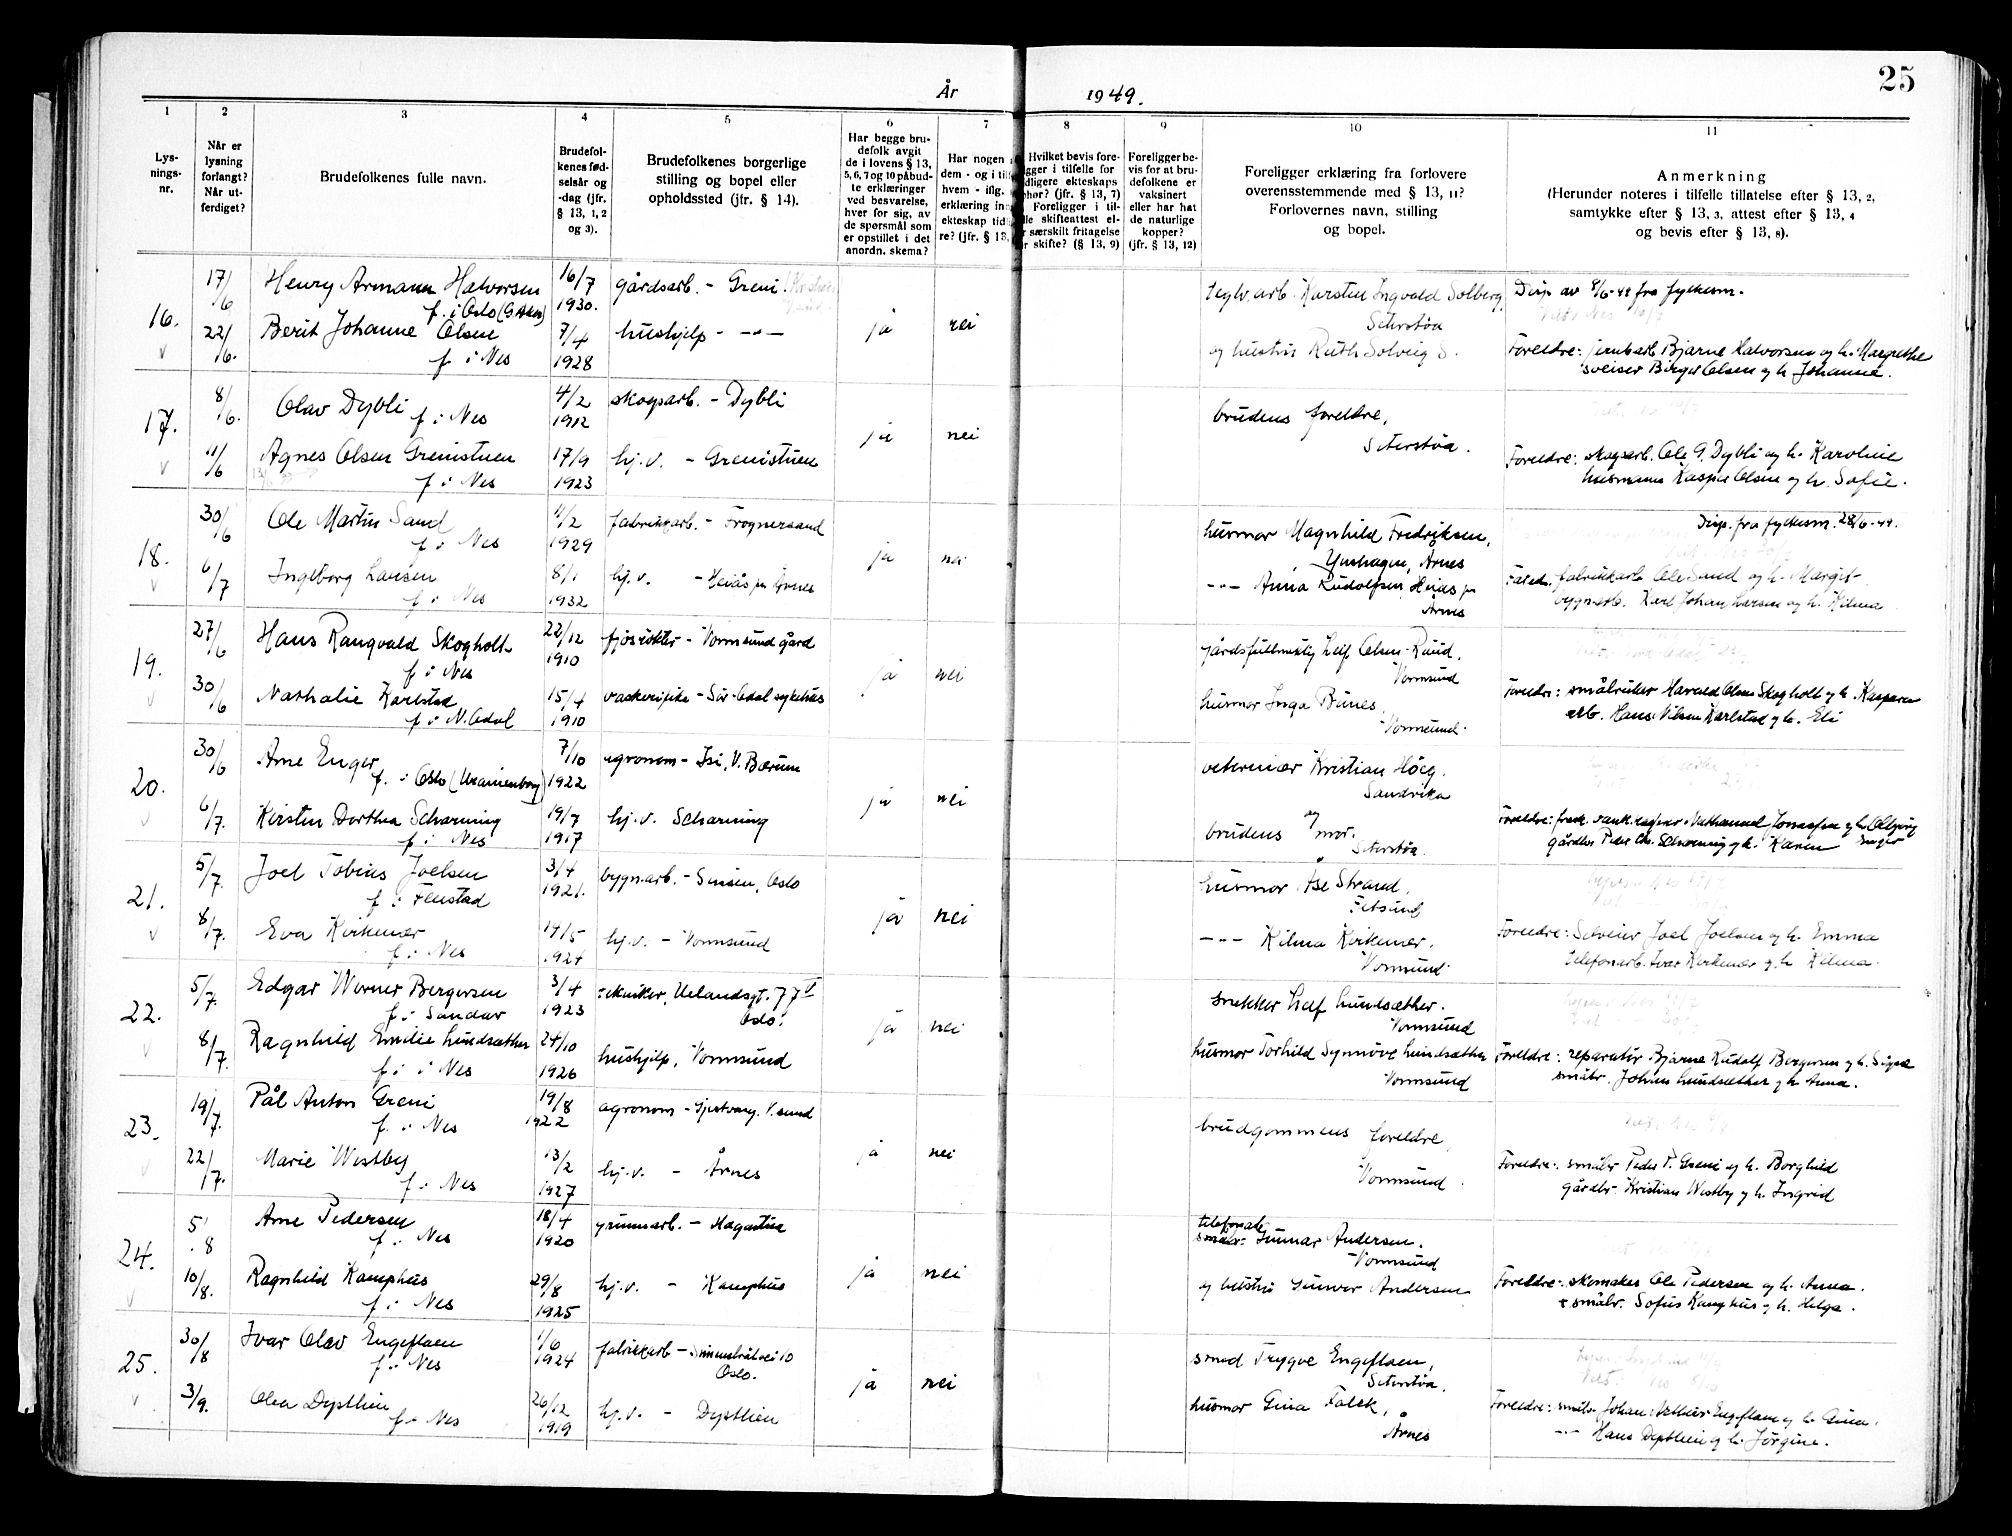 25
År 1949.
1 2 3 4 5 6 7 8 9 10 11
Lys-
nings-
nr.
Når er
lysning
forlangt?
Når ut-
ferdiget?
Brudefolkenes fulle navn.
Brudefol-
kenes fød-
selsår og
-dag (jfr.
§ 13, 1, 2
og 3).
Brudefolkenes borgerlige
stilling og bopel eller
opholdssted (jfr. § 14).
Har begge bru-
defolk avgit
de i lovens § 13,
5, 6, 7 og 10 påbud-
te erklæringer
ved besvarelse,
hver for sig, av
de spørsmål som
er opstillet i det
anordn. skema?
Har nogen
dem - og i til
hvem - iflg.
erklæring in
ekteskap tid
re? (jfr. § 13,
Hvilket bevis fore-
gger i tilfelle for
dligere ekteskaps
hør? (jfr. § 13, 7)
Foreligger i til-
lle skifteattest el-
r særskilt fritagelse
r skifte? (§ 13, 9)
Foreligger be-
vis for at bru-
defolkene er
vaksinert
eller har hat
de naturlige
kopper?
(jfr. § 13, 12)
Foreligger erklæring fra forlovere
overensstemmende med § 13, 11?
Forlovernes navn, stilling
og bopel.
Anmerkning
(Herunder noteres i tilfelle tillatelse efter § 13, 2,
samtykke efter § 13, 3, attest efter § 13, 4
og bevis efter § 13, 8).
16.
17/6 Henry Armann Halvorsen 16/7 gårdsarb. - Greni
f. i Oslo 1930.
22/6. Berit Johanne Olsen 7/4 hushjelp - -"- ja nei
f. i Nes 1928
arb. Karsten Ingvald Solberg,
Seterstøa
og hustru Ruth Solveig S.
Disp av 9/6-49 fra fylkesm.
Foreldre: jernbarb Bjarne Halvorsen og h. Margrethe
sveiser Birger Olsen og h. Johanne.
17.
8/6. Olav Dybli 4/2 skogsarb. - Dybli
f. i Nes 1912
11/6 Agnes Olsen Grenistuen 17/9 hj.v. - Grenistuen ja nei
f. i Nes 1923
brudens foreldre,
Seterstøa.
Foreldre: skogsarb. Ole G. Dybli og h. Karoline
husmann Kasper Olsen og h. Sofie.
18.
30/6 Ole Martin Sand 11/2 fabrikkarb. - Frognersand
f. i Nes 1929
6/7 Ingeborg Larsen 8/1 hj.v. - Heiås pr Årnes ja nei
f. i Nes 1932
husmor Magnhild Fredriksen,
Årnes
-"- Anna Rudolfsen, Heiås pr
Årnes
Disp. fra fylkesm. 28/6-49.
Foreld. fabrikkarb Ole Sand og h. Margit
bygnarb. Karl Johan Larsen og h. Hilma
19.
27/6 Hans Rangvald Skogholt 22/12 fjøsrøkter - Vormsund gård
f. i Nes 1910
30/6 Nathalie Karlstad 15/4 vaskeripike - Sør-Odal sykehus ja nei
f. i N. Odal 1910
gårdsfullmektig Leif Olsen-Ruud,
Vormsund
husmor Inga Bunes,
Vormsund.
Foreldr: småbruker Harald Olsen Skogholt og h. Kaspara
arb. Hans Nilsen Karlstad og h. Eli
20.
30/6 Arne Enger 7/10 agronom - Isi, V. Bærum
f. i Oslo (Uranienborg) 1922
6/7. Kirsten Dorthea Scharning 19/7 hj.v. Scharning ja nei
f. i Nes 1917
veterinær Kristian Høeg.
Sandvika
og
brudens mor.
Seterstøa.
Enger
gårdbr Peder Chr. Scharning og h. Karen
21.
5/7. Joel Tobias Joelsen 3/4 bygn.arb. - Sinsen, Oslo
f. i Fenstad 1921.
8/7. Eva Kirkemær 14/5 hj.v. - Vormsund ja nei
f. i Nes 1924
husmor Åse Strand,
Fetsund
-"- Hilma Kirkemær,
Vormsund.
Foreldre: Selveier Joel Joelsen og h. Emma
telefonarb. Ivar Kirkemær og h. Hilma.
22.
5/7. Edgar Werner Bergersen 3/4 tekniker, Uelandsgt. 77 V
f. i Sandar 1923 Oslo.
8/7. Ragnhild Emilie Lundsæther 24/10 hushjelp, Vormsund ja nei
f. i Nes 1926
snekker Leif Lundsæther.
Vormsund
husmor Torhild Synnøve Lundsæther
Vormsund
Foreldre: reparatør Bjarne Rudolf Bergersen og h. Signe
småbr. Johan Lundsæther og h. Anna.
23.
19/7. Pål Anton Greni 19/8 agronom - V.sund
f. i Nes 1922
22/7. Marie Westby 13/2 hj.v. - Årnes ja nei
f. i Nes 1927
brudgommens foreldre,
Vormsund.
Foreldre: småbr Peder P. Greni og h. Borghild
gårdbr. Kristian Westby og h. Ingrid
24.
5/8 Arne Pedersen 18/4 grunnarb. - Hagastua
f. i Nes 1920
10/8. Ragnhild Kamphus 29/8 hj.v. - Kamphus ja nei
f. i Nes 1925
telefonarb
Gunnar Andersen.
Vormsund
og hustru Gunvor Andersen
Foreldre: skomaker Ole Pedersen og h. Anna.
småbr. Sofus Kamphus og h. Helga.
25.
30/8 Ivar Olav Engeflaen 1/6 fabrikkarb -
f. i Nes 1924 Oslo.
3/9. Olea Dystlien 26/12 hj.v. - Dystlien ja nei
f. i Nes 1919
smed Trygve Engeflaen,
Seterstøa.
husmor Gina Falck,
Årnes
Foreldre: småbr Johan Engeflaen og h. Gina.
-"- Hans Dystlien og h. Jørgine.